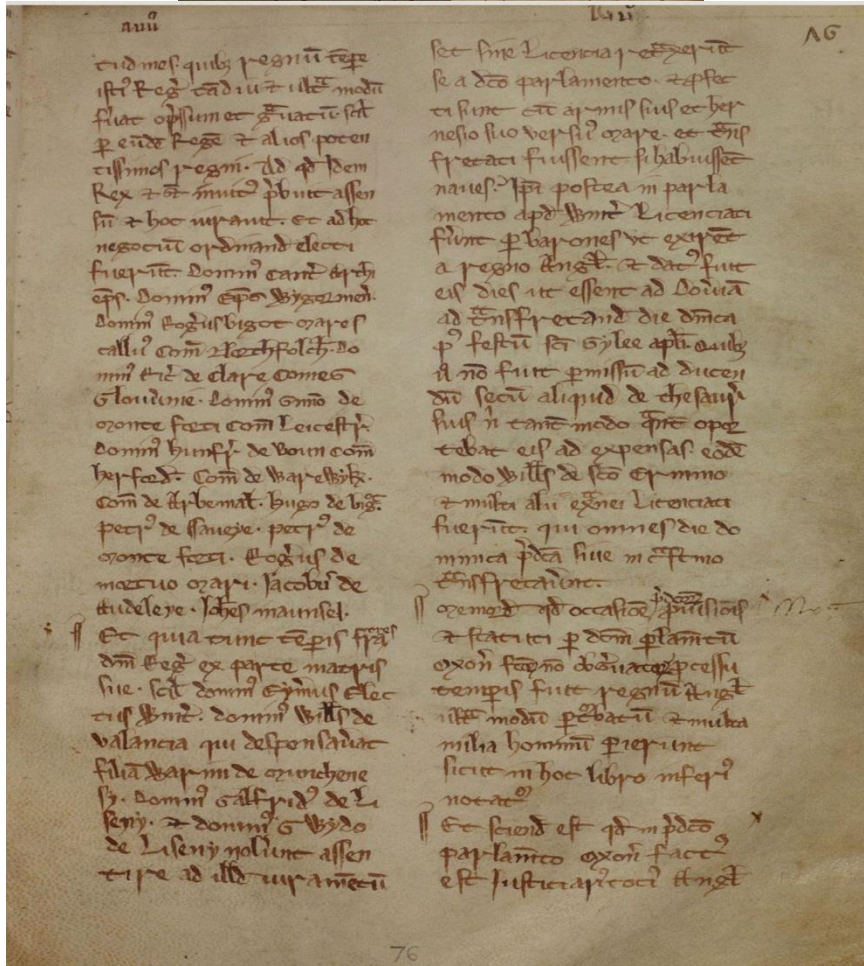 tudines quibȝ regnū tēpe
isti Regꝭ tādiu ⁊ ultͣ modū
fuat opp̄ssum et gͣuatū. scil̄
ꝑ eūdē Regē ⁊ alios poten
tissimos regni. Ad qd̄ Idem
Rex ⁊ inuitꝰ p̄buit assen
sū ⁊ hoc iurauit. Et ad hoc
negociū ordinand̄ electi
fuerūt Dominꝰ Cant̄ Archi
ep̄s. Dominꝰ Ep̄s Wygorneñ.
Dominꝰ Rogꝰus bigot mares
callꝰ Com̄ Northfolch̄. Do
minꝰ Ric̄ de Clare Comes
Glouernie. Dominꝰ Simō de
Monte forti Com̄ Leicestr̄.
Dominꝰ Hunfr̄. de Boun Com̄
herford̄. Com̄ de Warewyk̄.
Com̄ de Arbemal̄. hugo de bigͣ.
Petrꝰ de Saueye. Petrꝰ de
Monte forti. Rogꝰus de
Mortuo Mari. Jacobꝰ de
Audeleye. Joh̄es Maunsel.
Et quia tunc tēporis frͣes
dn̄i Regꝭ ex parte matris
sue. scil̄ dominꝰ Eymꝰus Elec
tus Wynt̄. dominꝰ Will̄s de
Valancia qui desponsauat
filiā Warini de Munchene
sy. Dominꝰ Galfridꝰ de Li
seny. ⁊ dominꝰ Gwydo
de Liseny noluīt assen
tire ad illud iuramētū
set sine Licencia retͣxerūt
se a dc̄o parlamento. ⁊ ꝓfec
ti sunt cū armis suis et her
nesio suo versꝰ Mare. et tͣns
fretati fuissent si habuissēt
naues. Ip̄i postea in parla
mento apd̄ Wynt̄ Licenciati
fuīunt ꝑ barones vt exirēt
a regno Angl̄. ⁊ datꝰ fuit
eis dies ut essent ad Douiā
ad tͣnsfretand̄ die dn̄ica
pꝰ festū sc̄i Sylee apl̄i. Quibȝ
nō fuit ꝑmissū ad ducen
dū secū aliquid de thesaurꝭ
suis ñ tantū modo qͣnt opor
tebat eis ad expensas. eodē
modo Will̄s de sc̄o Ermino
⁊ multi alii exͣnei Licenciati
fuerūt. qui omnes die do
minica p̄dc̄a siue in cͣstino
tͣnsfretauīnt.
Memord̄ qd̄ occasione p̄dc̄arū ꝓuisionis
⁊ statuti ꝑ dc̄m ꝑlam̄tū
Oxoñ fc̄orū nō obꝰuatorū ꝓcessu
temporis fuit regnū Angl̄
ultͣ modū ꝑtͥbatū ⁊ multa
milia hominū perierunt
sicut in hoc libro inferiꝰ
notatͬ
Et sciend̄ est qd̄ in p̄dc̄o
parlam̄to Oxoñ factꝰ
est Justiciariꝰ tociꝰ Angl̄
76